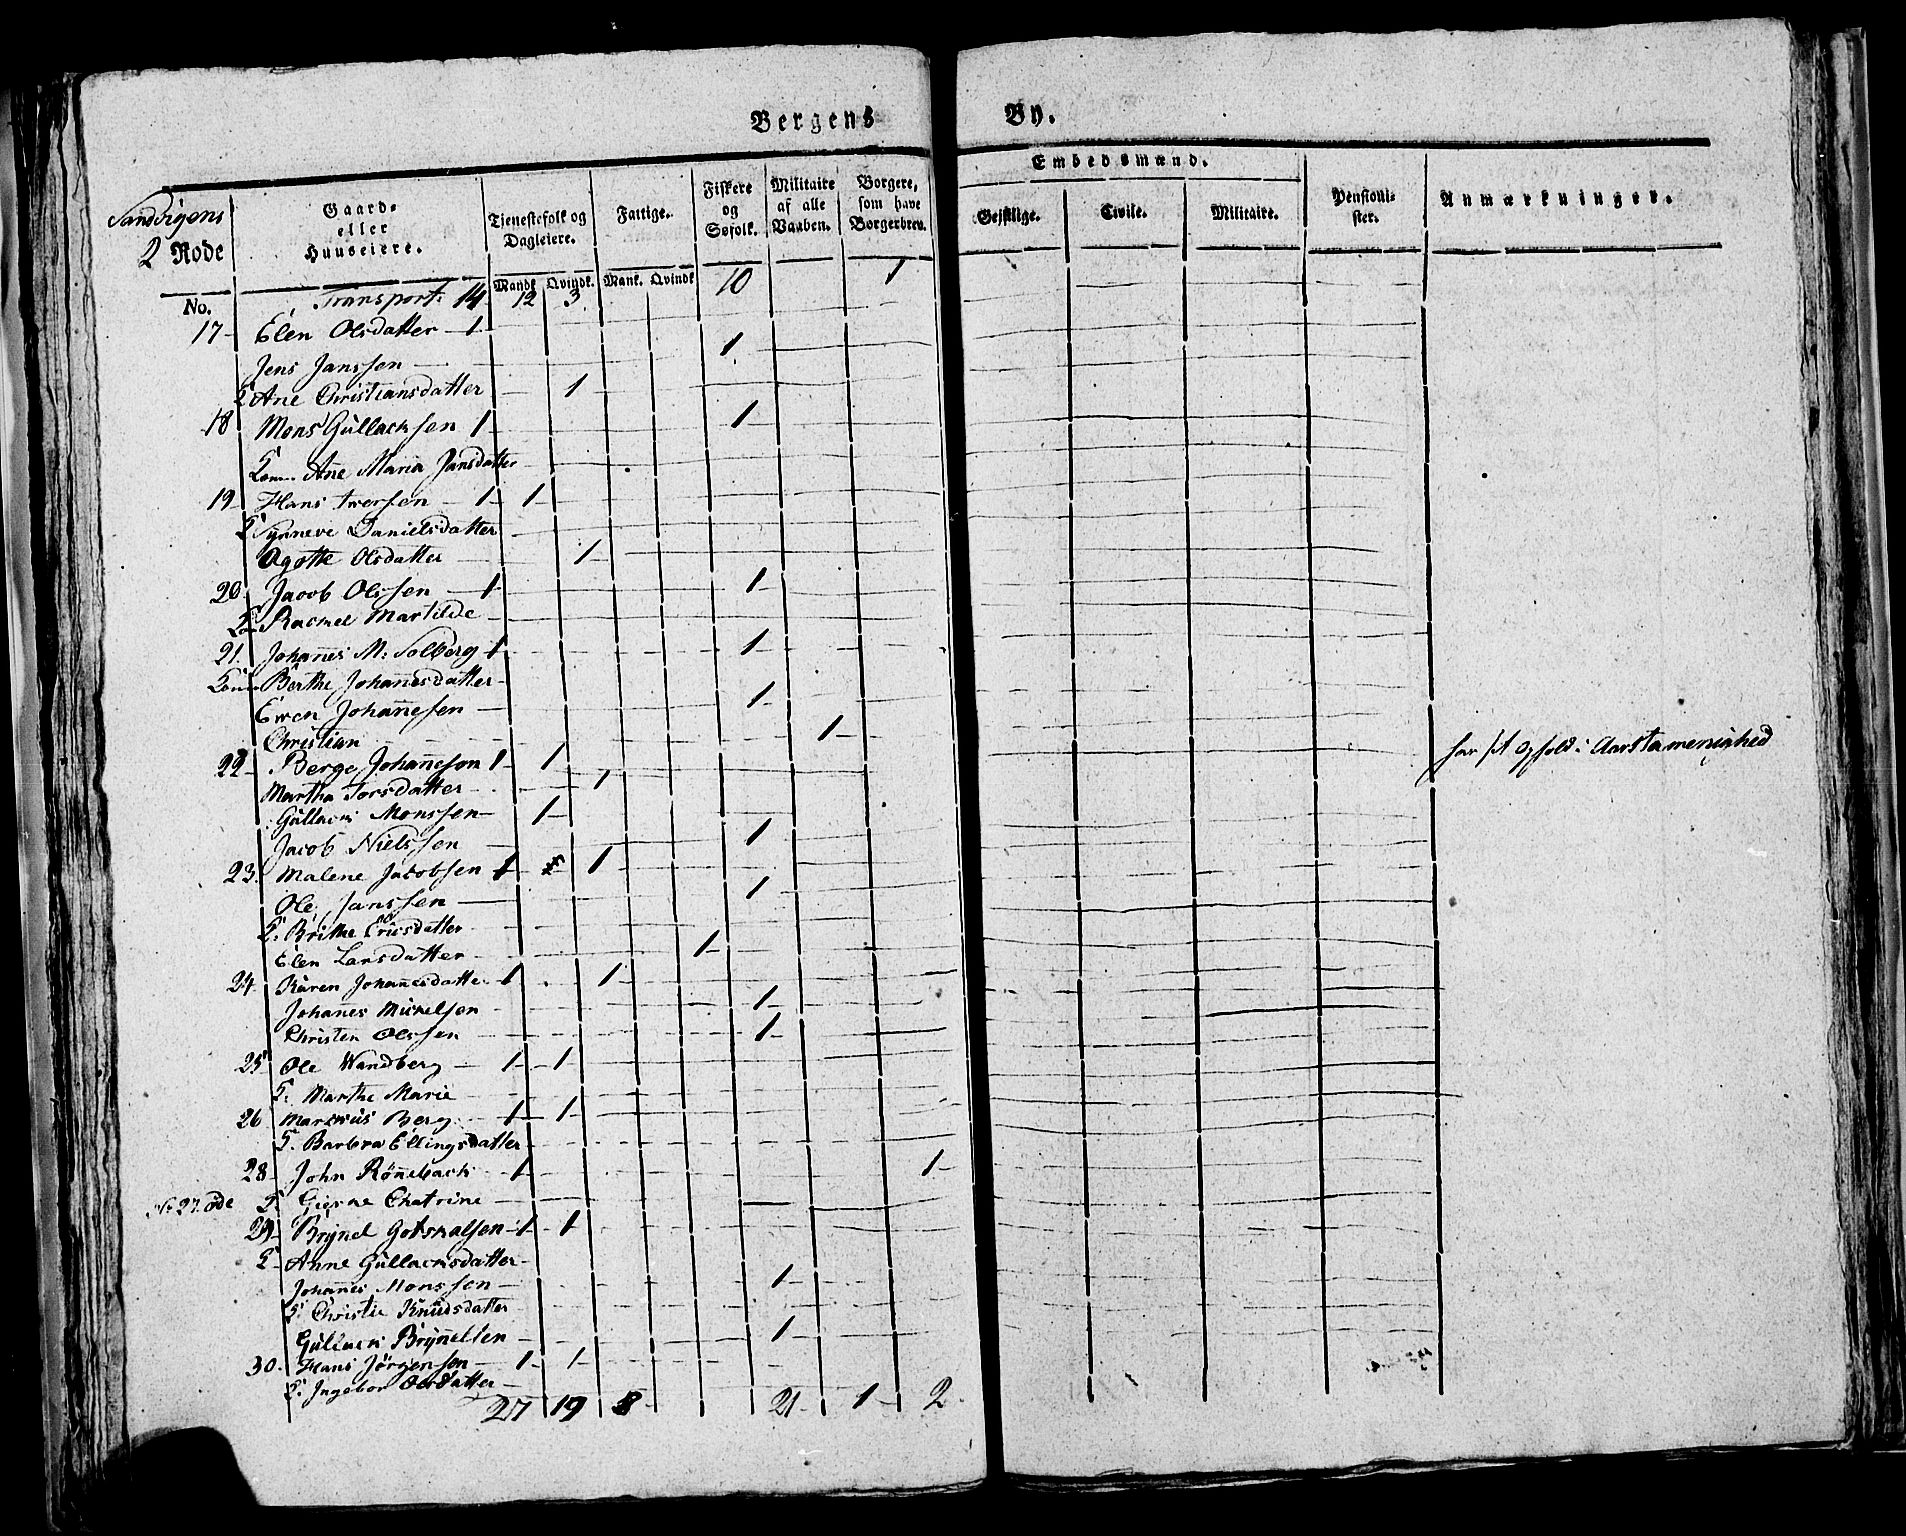 Bergens By.
Sandvigens
2 Rode
Gaard- eller Huuseiere.
Tjenestefolk og Dagleiere.
Fattige.
Fiskere og Søfolk.
Militaire af alle Vaaben.
Borgere, som have Borgerbrev.
Embedsmænd.
Geistlige.
Civile.
Militaire.
Pensioni- ster.
Anmærkninger.
No.
Mandk. Qvindk. Mank. Qvindk
Transport 14 12 3 10 1
17 Elen Olsdatter 1
Jens Janssen 1
Ane Christiansdatter 1
18 Mons Gullacksen 1 1
Ane Maria Jansdatter
19 Hans Iwersen 1 1
Synneve Danielsdatter
Agotte Olsdatter 1
20 Jacob Olssen 1 1
Rachel Martilde
21. Johannes M: Solberg 1 1
Berthe Johannesdatter
Ewen Johannesen 1
Christian 1
22 Berge Johanneson 1 1 har sit Ophold i Aarstamenighed
Martha Torsdatter 1
Gullack Monssen 1
Jacob Nielssen 1
23. Malene Jacobsen 1 1
Ole Janssen 1
Brithe Ericsdatter
Elen Larsdatter 1
24 Karen Johannesdatter 1 1
Johanes Mickelsen 1
Christen Olssen 1
25 Ole Wandberg 1 1
Marthe Marie
26 Marckus Berg 1 1
Barbra Ellingsdatter
28 John Rønnebach 1 1
No 27. øde
Gierne Chatrine
29 Brynel Gotskalsen 1 1
Anne Gullacksdatter
Johannes Monssen 1
Christie Knudsdatter
Gullack Brynelsen 1
30. Hans Jørgensen 1 1
Ingebor Olsdatter
27 19 8 21 1 2